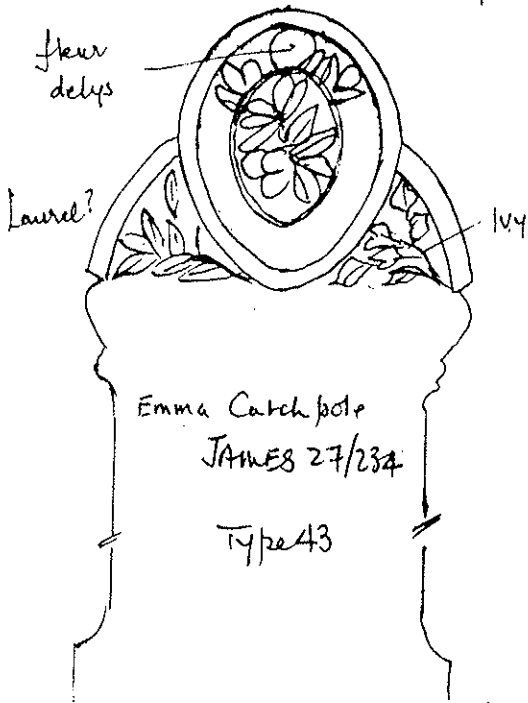 fleur
delys
Laurel?
Ivy
Emma Catchpole
JAMES 27/234
Type 43